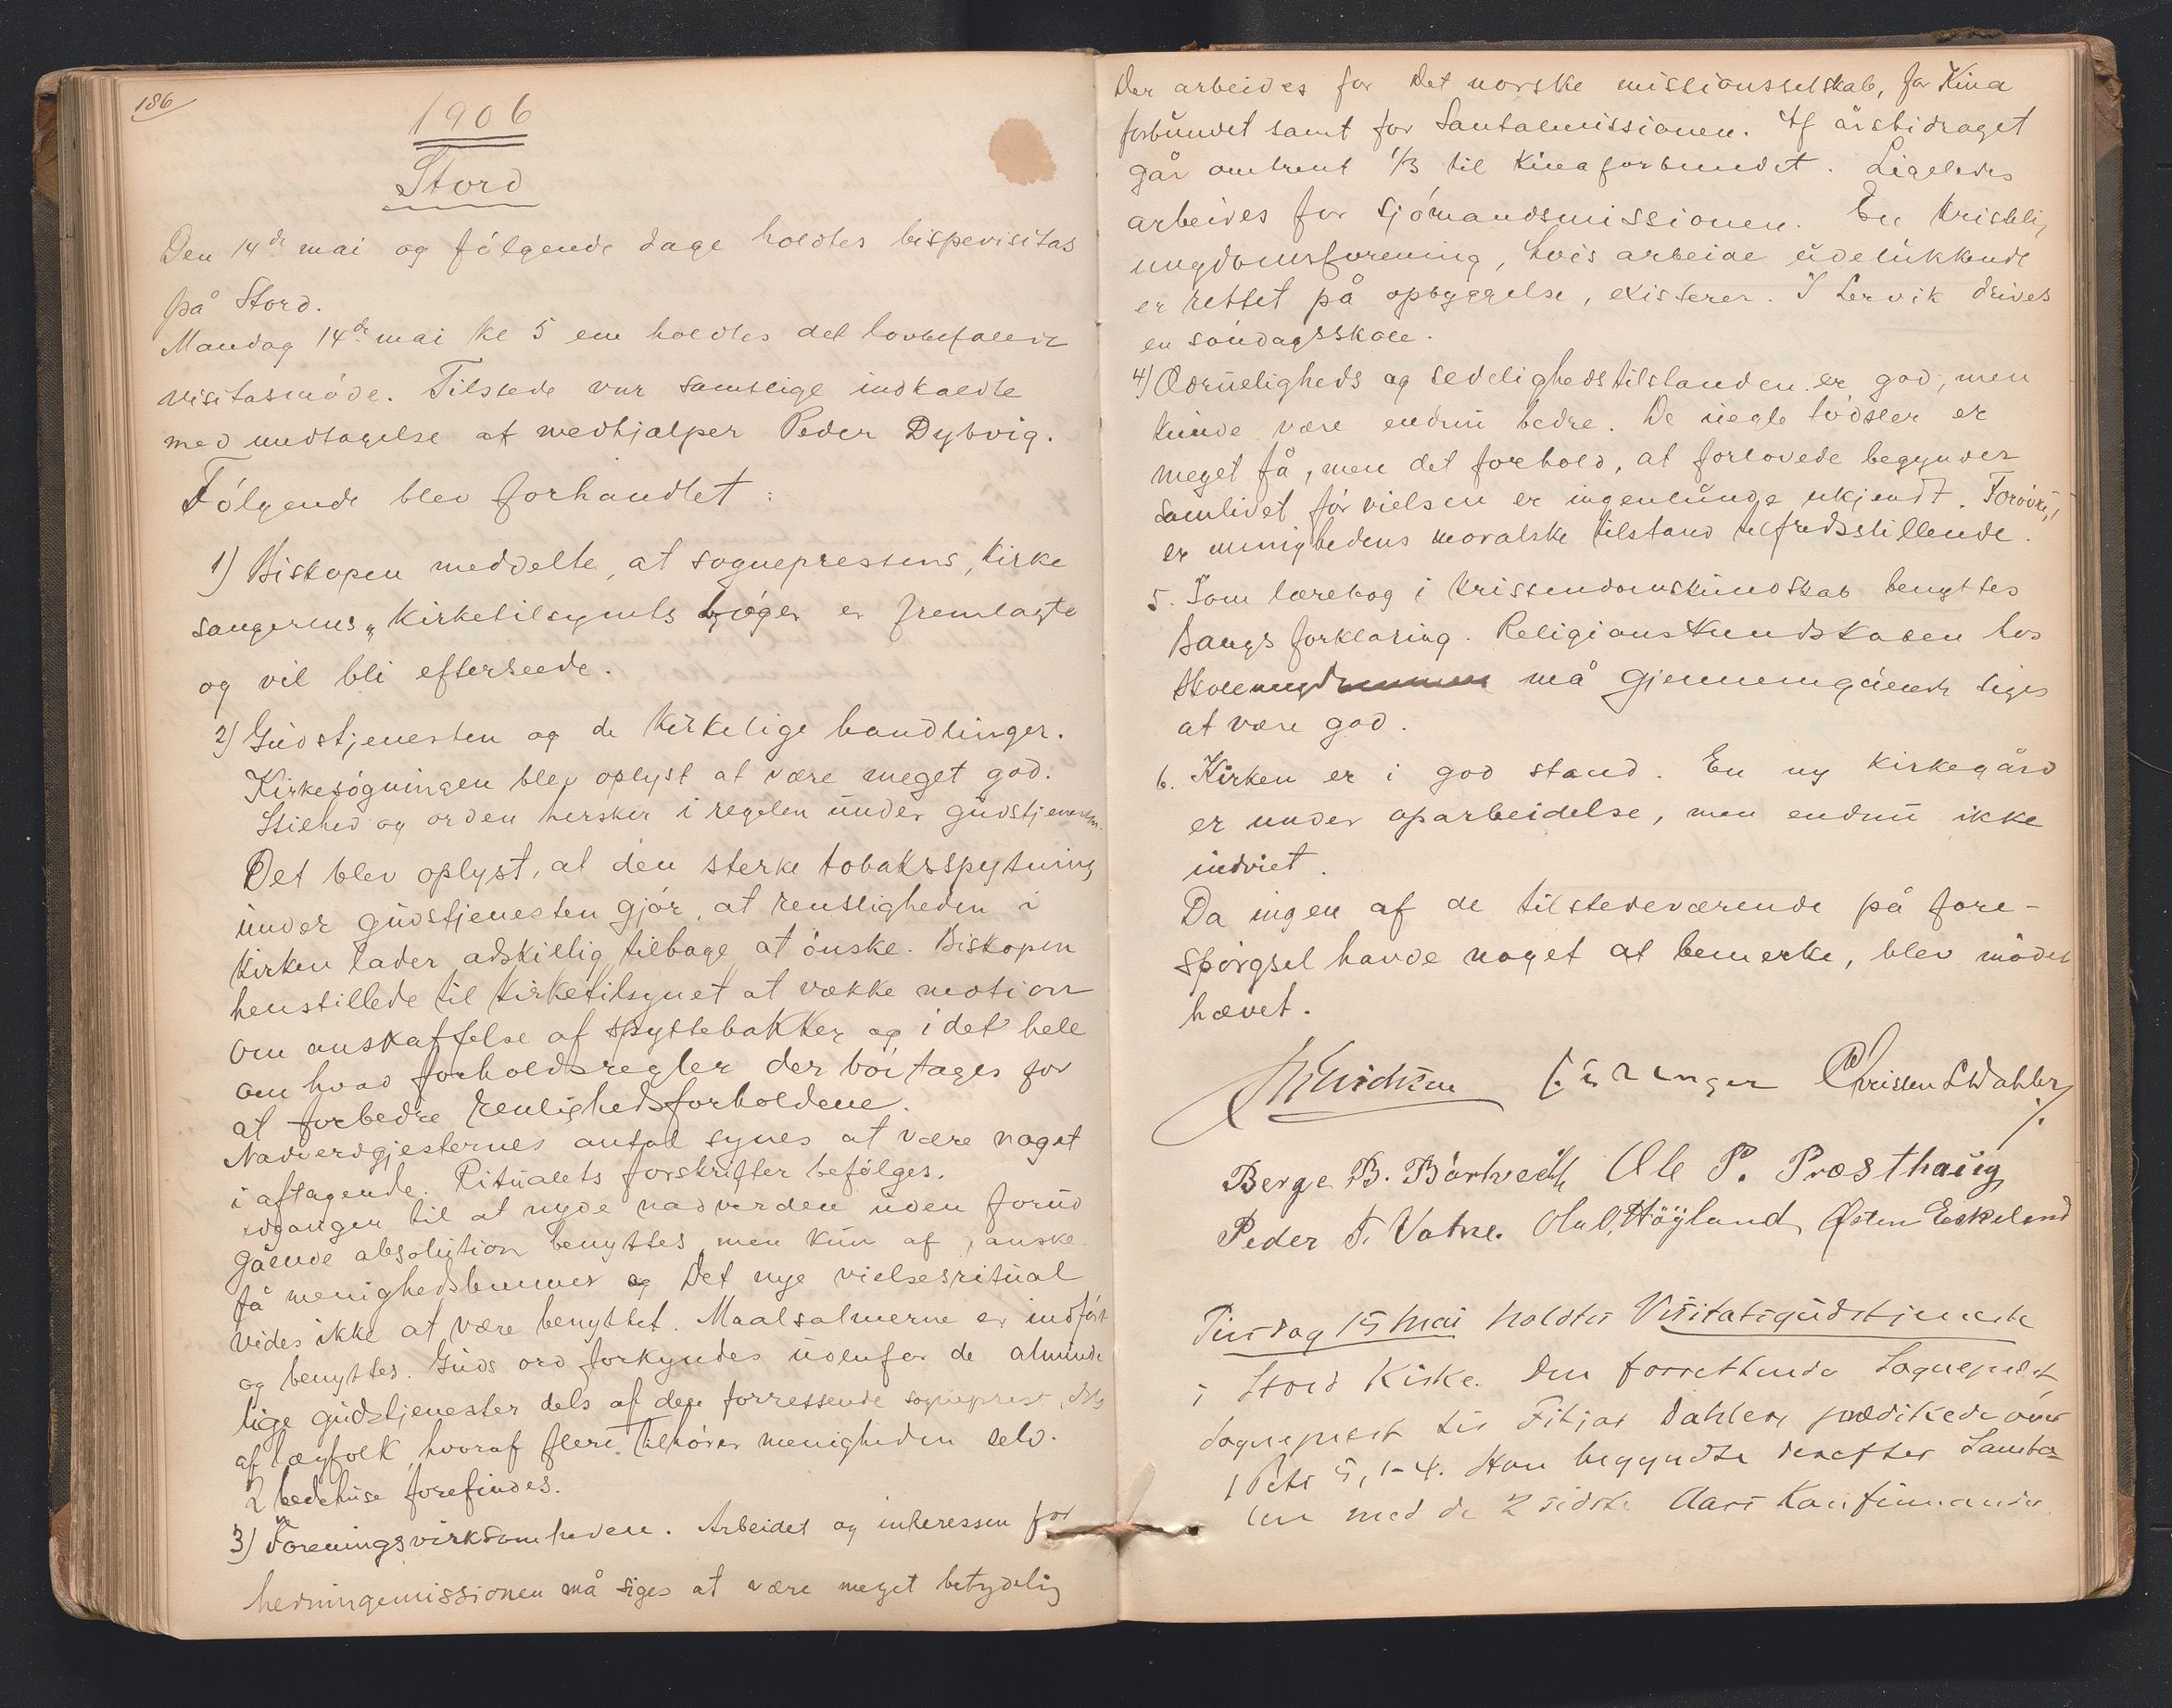 186
1906
Stord
Den 14de mai og følgende dage holdtes bispevisitas
på Stord.
Mandag 14de mai kl 5 em holdtes det lovbefalede
visitasmøde. Tilstede var samtlige indkaldte
med undtagelse af medhjælper Peder Dybvig.
Følgende blev forhandlet:
1) Biskopen meddelte, at sogneprestens, kirke
sangerens, kirketilsynets bøger er fremlagte
og vil bli efterseede.
2) Gudstjenesten og de kirkelige handlinger.
Kirkesøgningen blev oplyst at være meget god.
Stilhed og orden hersker i regelen under gudstjenesten.
Det blev oplyst, at den sterke tobaksspytning
under gudstjenesten gjør, at rensligheden i
kirken lader adskillig tilbage at ønske. Biskopen
henstillede til kirketilsynet at vække motion
om anskaffelse af spyttebakker og i det hele
om hvad forholdsregler der bør tages for
at forbedre renlighedsforholdene.
Nadverdgjesternes antal synes at være noget
i aftagende. Ritualets forskrifter befølges.
Adgangen til at nyde nadverden uden forud
gående absolution benyttes men kun af ganske
få menighedslemmer og Det nye vielsesritual
vides ikke at være benyttet. Maalsalmerne er indført
og benyttes. Guds ord forkyndes udenfor de alminde
lige gudstjenester dels af den forrettende sogneprest, dels
af lægfolk, hvoraf flere tilhører menigheden selv.
2 bedehuse forefindes.
3) Foreningsvirksomheden. Arbeidet og interessen for
hedningemissionen må siges at være meget betydelig
Der arbeides for Det norske missionsselskab, for Kina
forbundet samt for Santalmissionen. Af årsbidraget
går omtrent 1/3 til Kinaforbundet. Ligeledes
arbeides for Sjømandsmissionen. En kristelig
ungdomsforening, hvis arbeide udelukkende
er rettet på opbyggelse, existerer. I Lervik drives
en søndagsskole.
4) Ædrueligheds og sedelighedstilstanden er god, men
kunde være endnu bedre. De uegte fødsler er
meget få, men det forhold, at forlovede begynder
samlivet før vielsen er ingenlunde ukjendt. Forøvrigt
er menighedens moralske tilstand tilfredsstillende.
5. Som lærebog i kristendomskundskab benyttes
Bangs forklaring. Religionskundskaben hos
skoleungdommen må gjennemgående siges
at være god.
6. Kirken er i god stand. En ny kirkegård
er under oparbeidelse, men endnu ikke
indviet.
Da ingen af de tilstedeværende på fore-
spørgsel havde noget at bemerke, blev mødet
hævet.
Christen S Dahler
Berge B. Børtveit Ole P. Præsthaug
Peder T. Vatne. Ola O. Høyland Østen Eskeland
Tirsdag 15 Mai holdtes Visitatsgudstjeneste
i Stord Kirke. Den forrettende Sogneprest,
Sogneprest til Fitjar Dahler, prædikede over
1 Petr 5, 1-4. Han begyndte derefter Samta-
len med de 2 sidste Aars Konfirmander